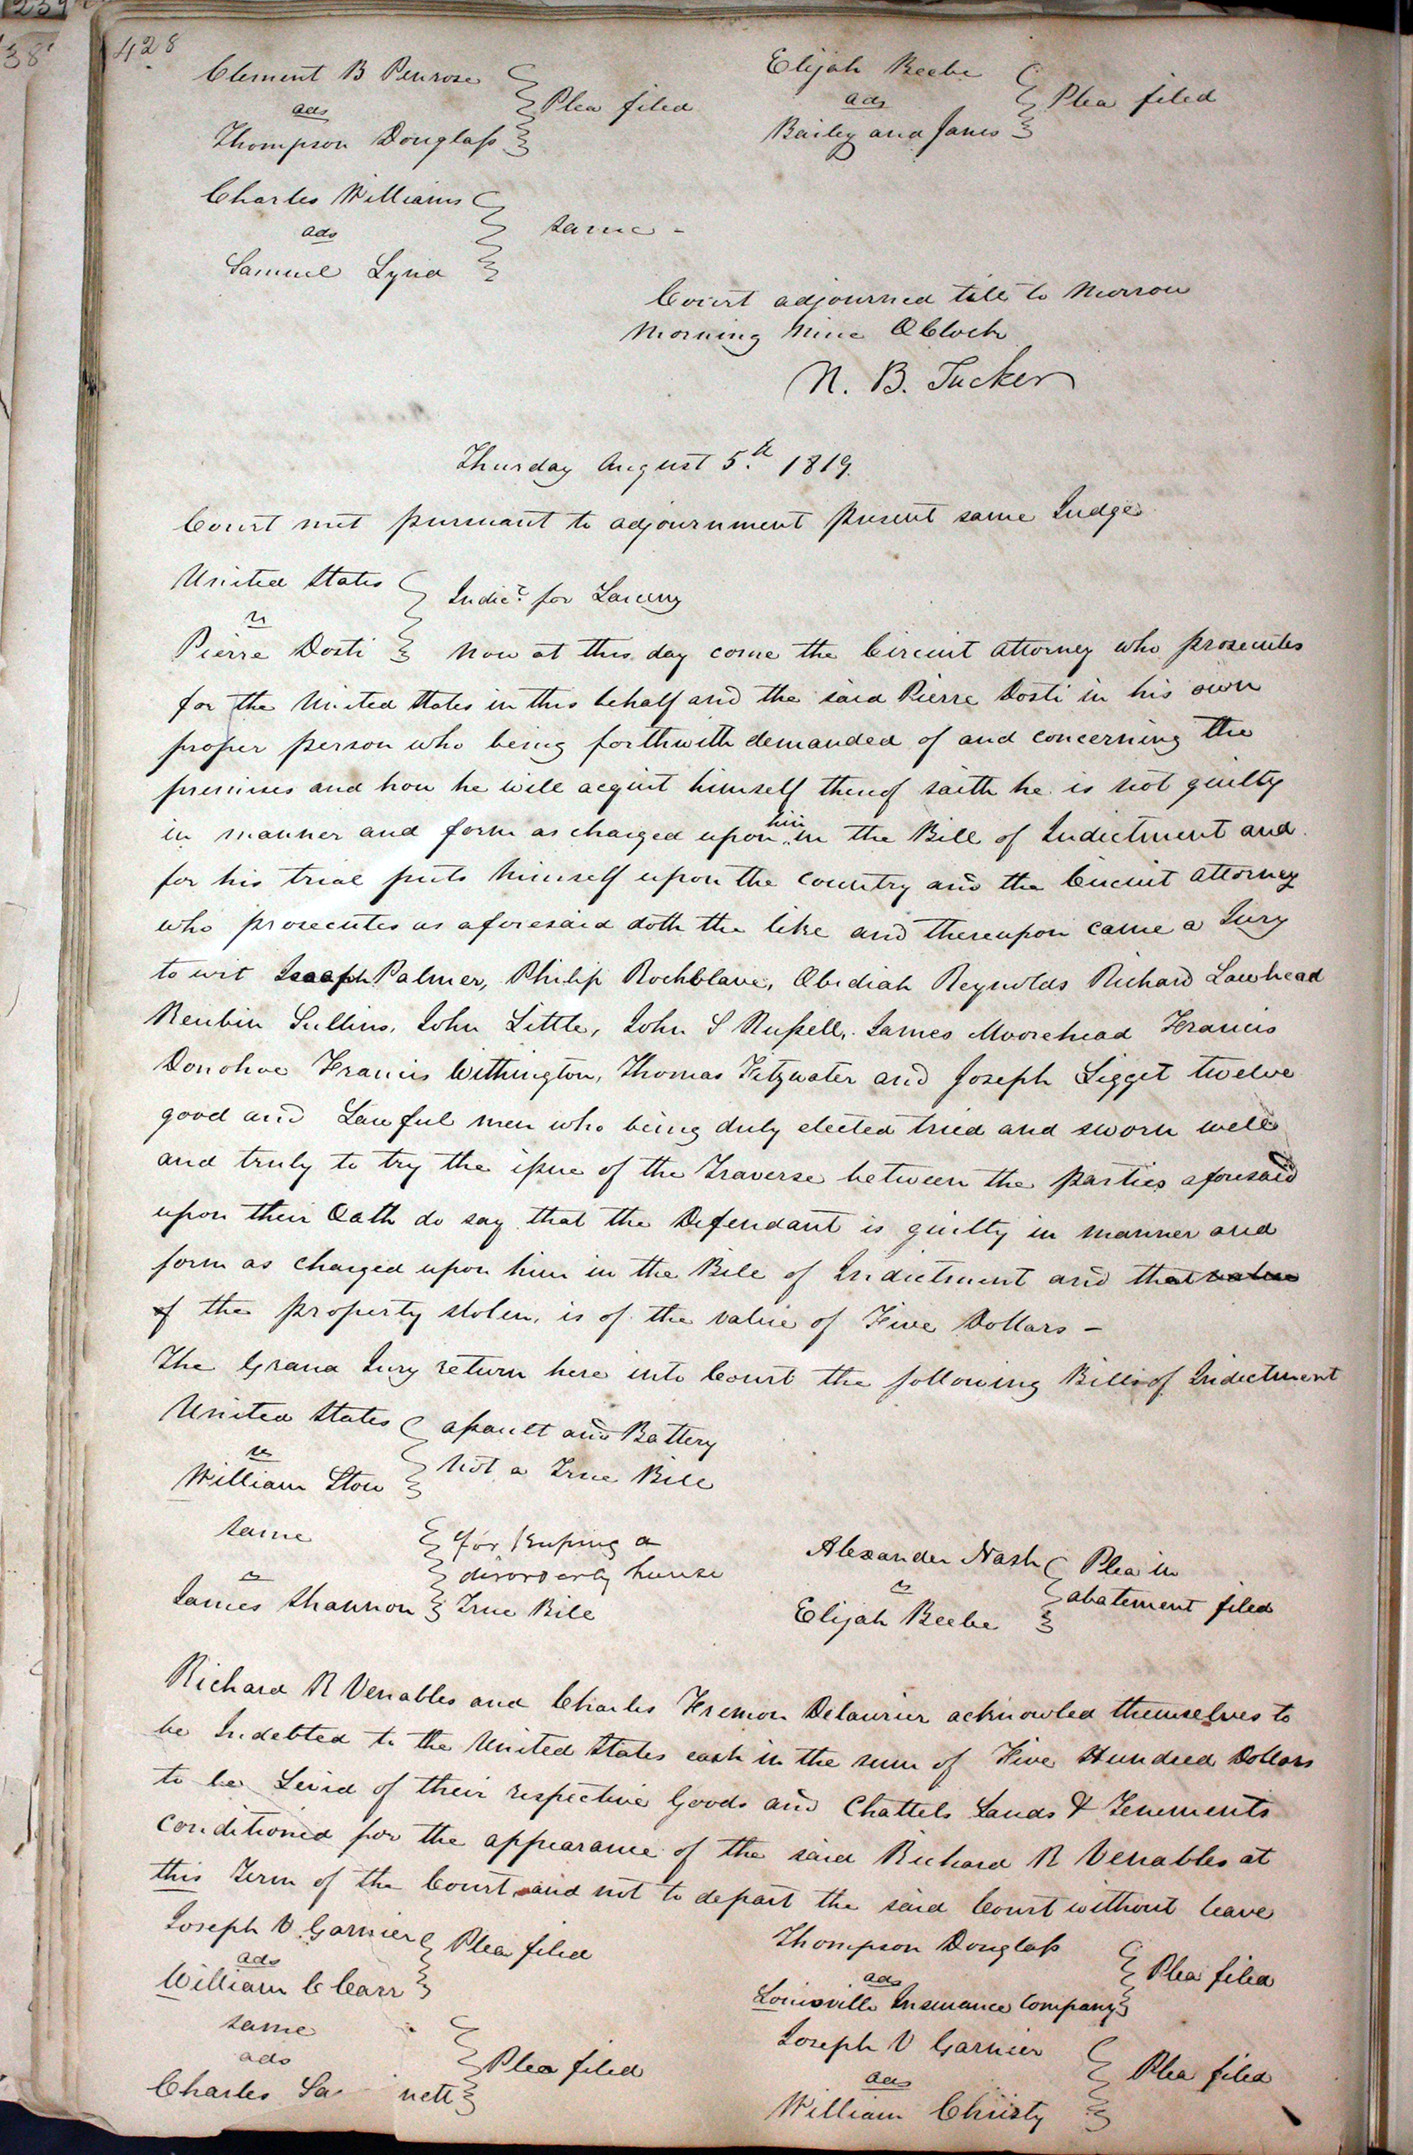 428
Clement B Penrose
ads
Thompson Douglass
Plea filed
Elijah Beebe
ads
Bailey and Janes
Plea filed
Charles Williams
ads
Samuel Lynd
same -
Court adjourned till to Morrow
Morning Nine OClock
N. B. Tucker
Thursday August 5.th 1819.
Court met pursuant to adjournment present same Judge
United States
vs
Pierre Dosti
Indict. for Larceny
Now at this day come the Circuit attorney who prosecutes
for the United States in this behalf and the said Pierre Dosti in his own
proper person who being forthwith demanded of and concerning the
premises and how he will acquit himself thereof saith he is not guilty
in manner and form as charged upon him in the Bill of Indictment and
for his trial puts himself upon the Country and the Circuit attorney
who prosecutes as aforesaid doth the like and thereupon came a Jury
to wit Joseph Palmer, Philip Rochblave, Obediah Reynolds Richard Lawhead
Reubin Sullins, John Little, John S Russell, James Moorehead Francis
Donohoe Francis Withington, Thomas Fitzwater and Joseph Ligget twelve
good and Lawful men who being duly elected tried and sworn well
and truly to try the issue of the Traverse between the parties aforesaid
upon their Oath do say that the Defendant is guilty in manner and
form as charged upon him in the Bill of Indictment and that value
of the property stolen, is of the value of Five Dollars -
The Grand Jury return here into Court the following Bills of Indictment
United States
vs
William Stow
assault and Battery
Not a True Bill
same
vs
James Shannon
for keeping a
disorderly house
True Bill
Alexander Nash
vs
Elijah Beebe
Plea in
abatement filed
Richard R Venables and Charles Fremon Delaurier acknowled themselves to
be Indebted to the United States each in the sum of Five Hundred Dollars
to be Levied of their respective Goods and Chattels Lands & Tenements
conditioned for the appearance of the said Richard R Venables at
this Term of the Court and not to depart the said Court without leave
Joseph V Garnier
ads
William C Carr
Plea filed
Thompson Douglass
ads
Louisville Insurance Company
Plea filed
same
ads
Charles Sa nett
Plea filed
Joseph V Garnier
ads
William Christy
Plea filed